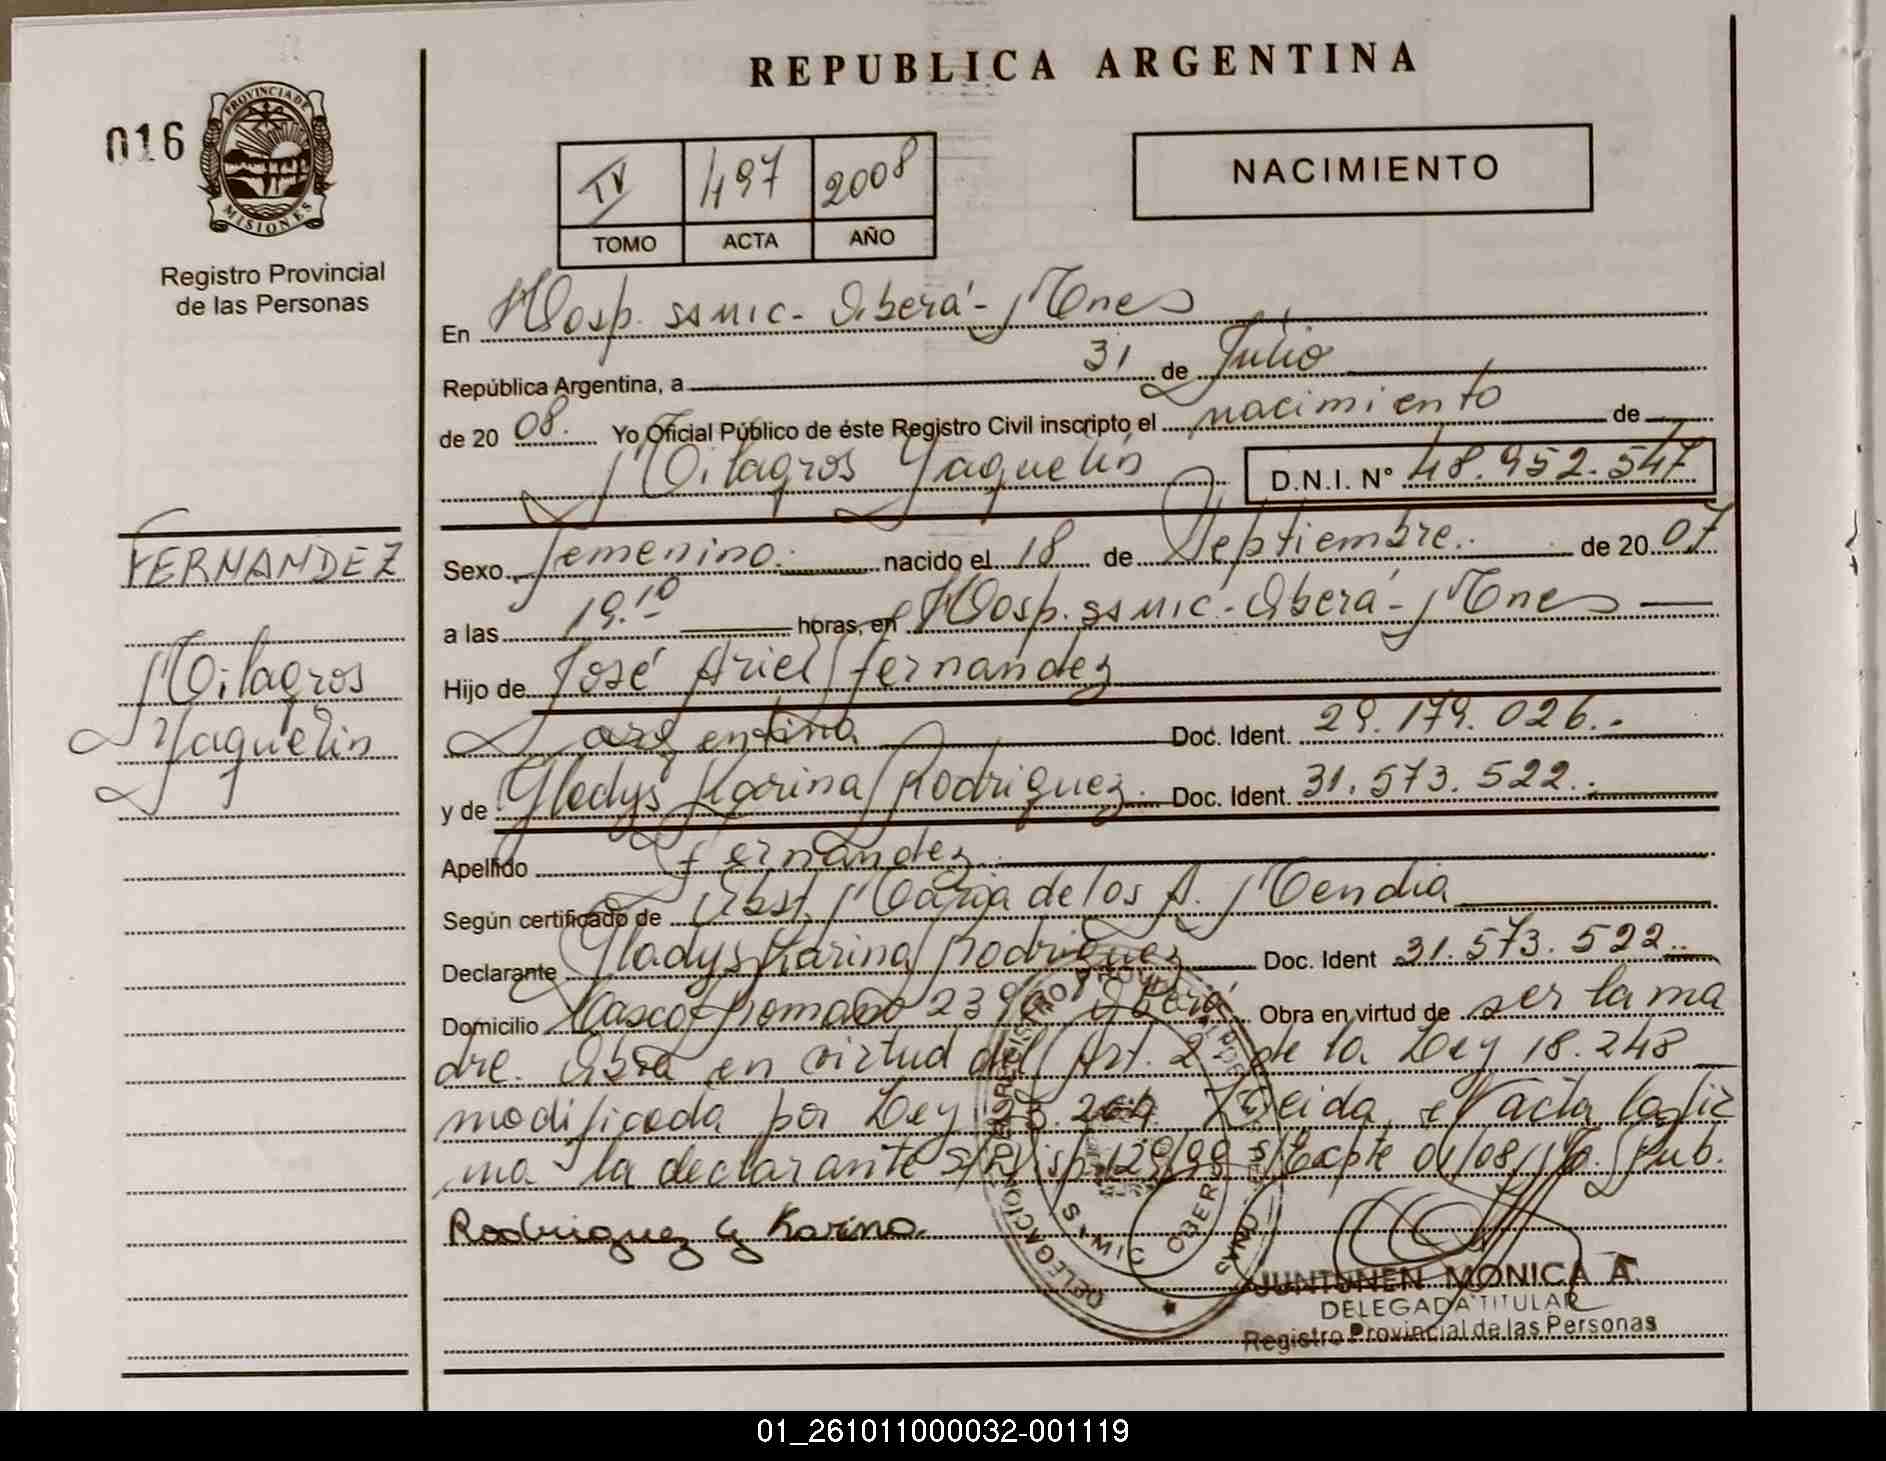 REPUBLICA ARGENTINA
016
PROVINCIA DE MISIONES
Registro Provincial
de las Personas
IV 497 2008
TOMO ACTA AÑO
NACIMIENTO
En Hosp. SSMIC - Oberá - Mnes
República Argentina, a 31 de Julio
de 2008. Yo Oficial Público de éste Registro Civil inscripto el nacimiento de
Milagros Yaquelin D.N.I. N° 48.952.547
FERNANDEZ
Milagros
Yaquelin
Sexo femenino. nacido el 18 de Septiembre. de 2007
a las 19.10 horas, en Hosp. SSMIC - Oberá - Mnes
Hijo de José Ariel Fernandez
argentina Doc. Ident. 29.179.026.-
y de Gladys Karina Rodriguez. Doc. Ident. 31.573.522.-
Apellido Fernandez
Según certificado de Obst. Maria de los A. Mendia
Declarante Gladys Karina Rodriguez Doc. Ident 31.573.522.-
Domicilio Oberá Obra en virtud de ser la ma
dre. Obra en virtud del Art. 2 de la Ley 18.248
modificada por Ley Leida el acta la fir
ma la declarante s/ Disp. 129/99 s/Expte 01/08 Pub.
Rodriguez G Karina.
DELEGACION OBERA
JUNTUNEN MONICA A.
DELEGADA TITULAR
Registro Provincial de las Personas
01_261011000032-001119